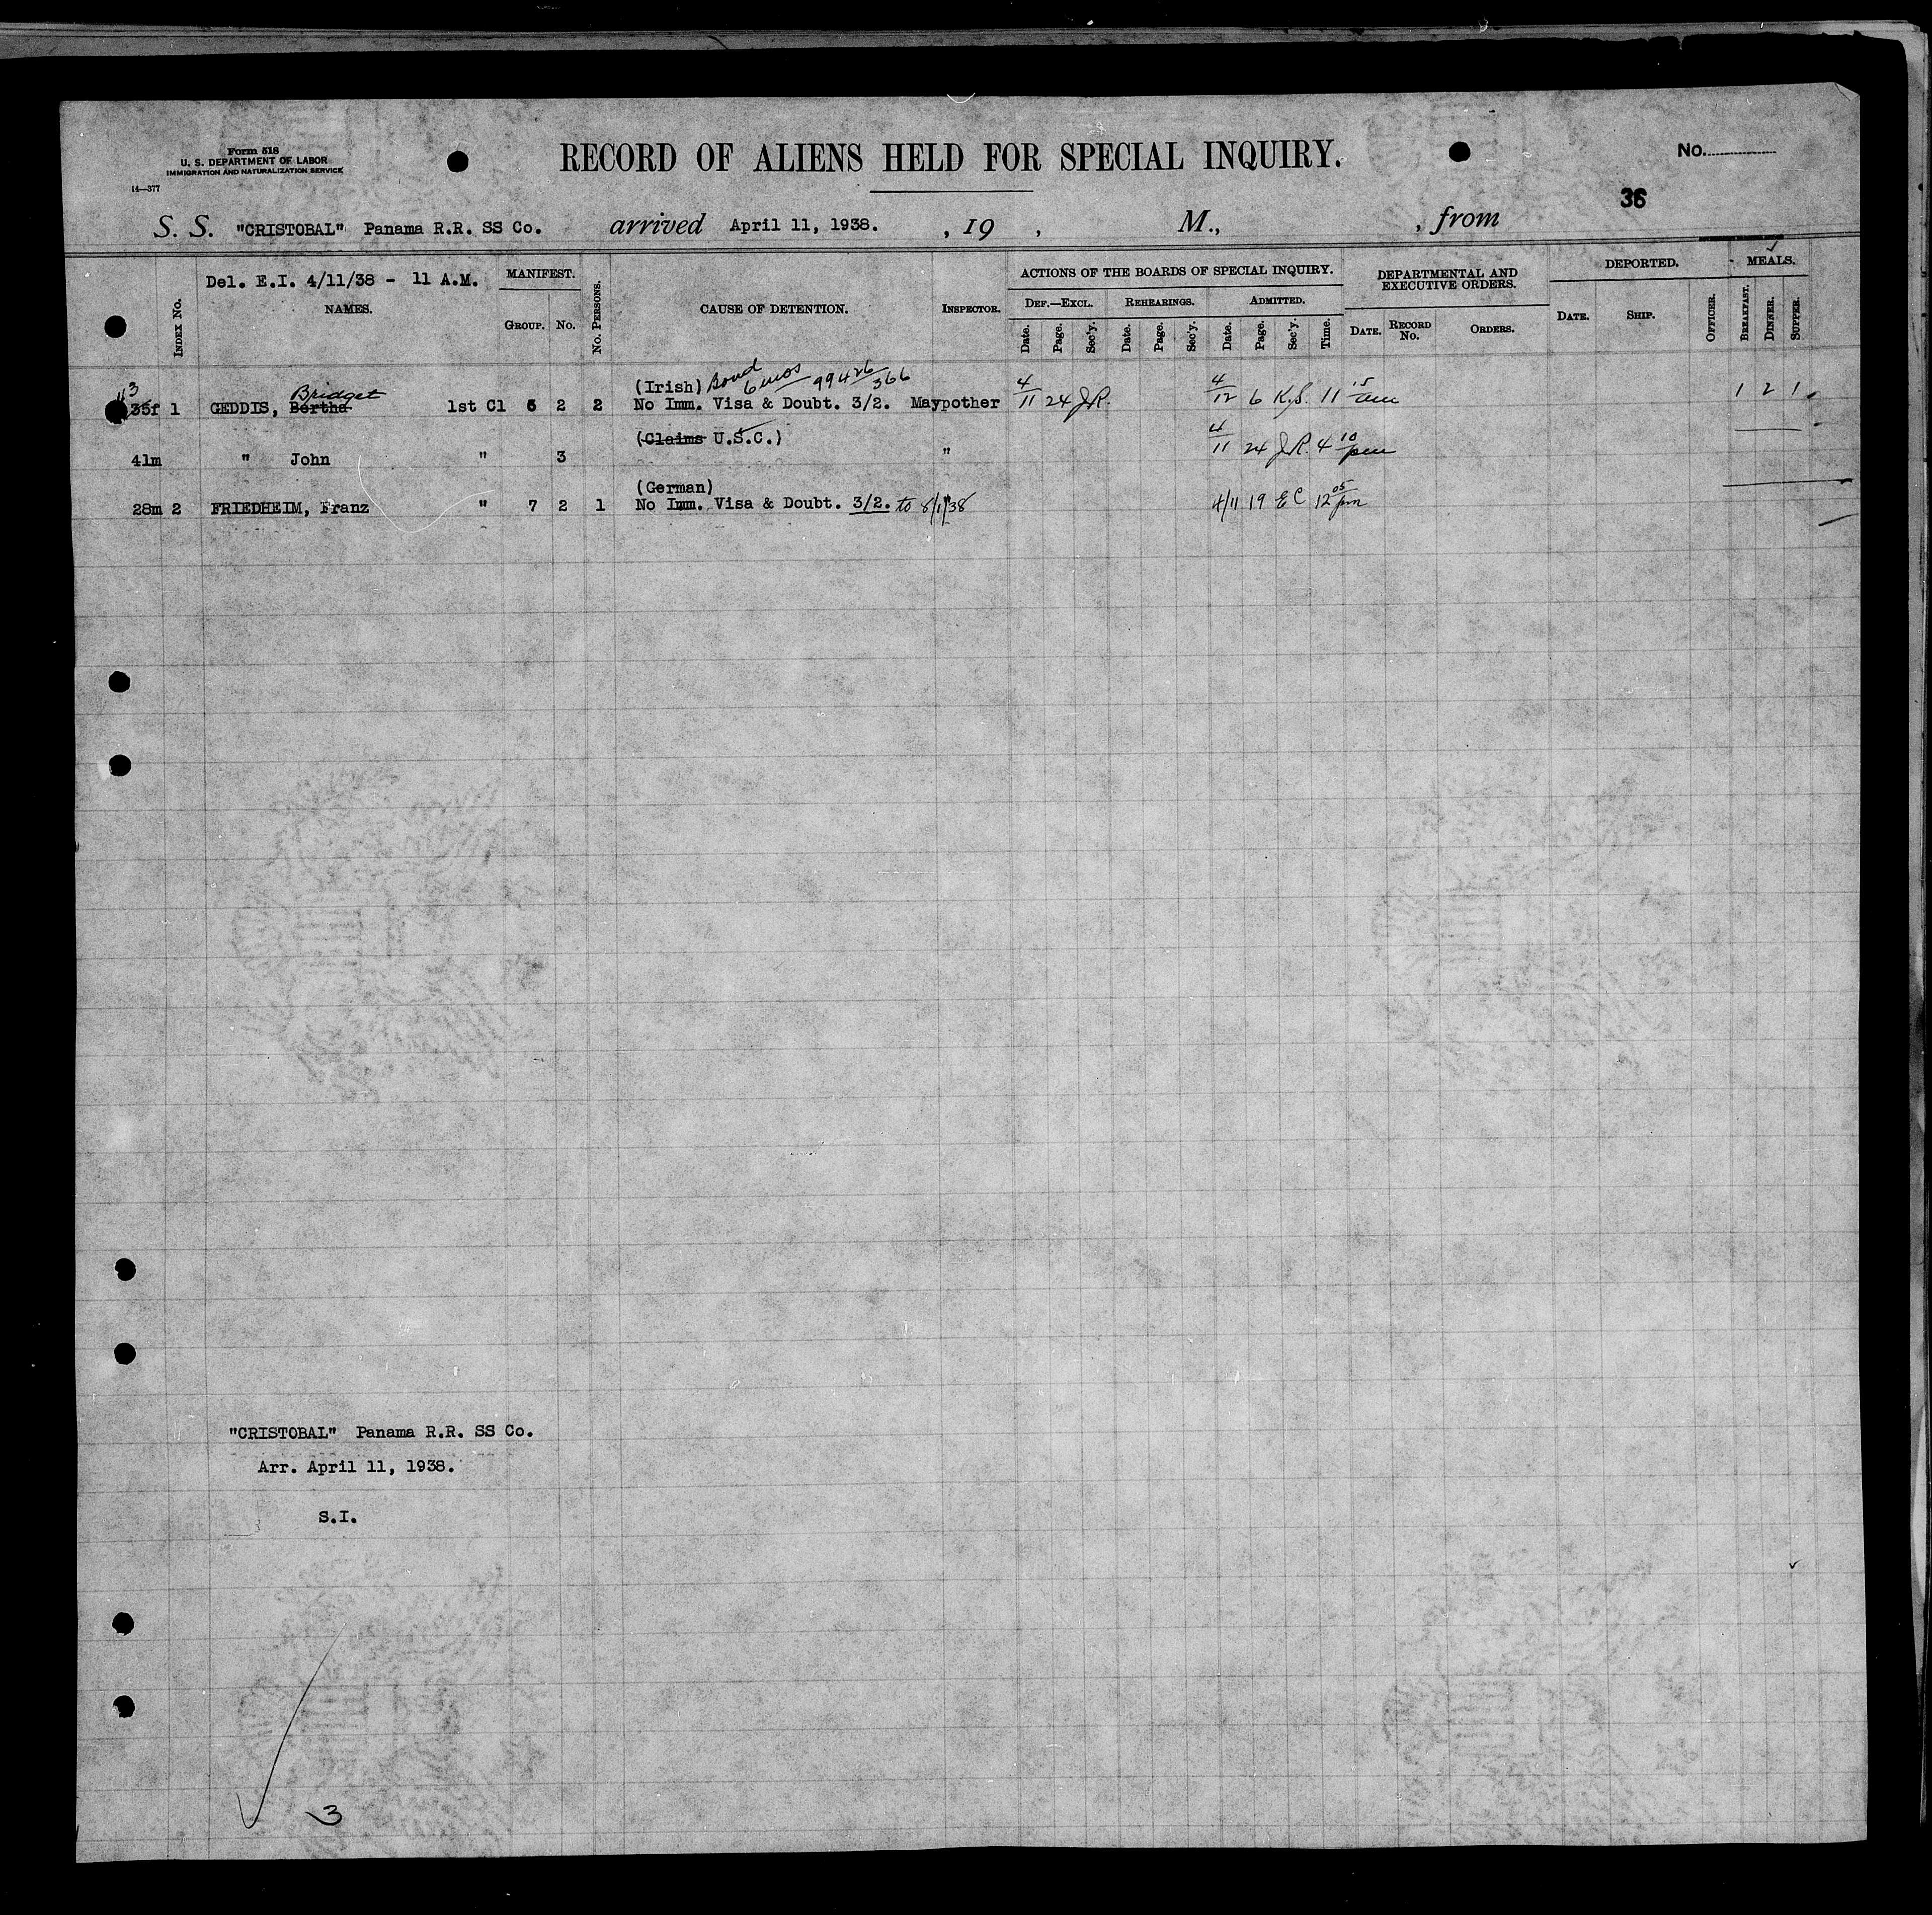 Form 518
U. S. DEPARTMENT OF LABOR
IMMIGRATION AND NATURALIZATION SERVICE
14—377
RECORD OF ALIENS HELD FOR SPECIAL INQUIRY.
No.
36
S. S. "CRISTOBAL" Panama R.R. SS Co. arrived April 11, 1938. , 19 , M., , from
Del. E.I. 4/11/38 - 11 A.M.
INDEX No. NAMES. MANIFEST. GROUP. No. No. PERSONS. CAUSE OF DETENTION. INSPECTOR.
ACTIONS OF THE BOARDS OF SPECIAL INQUIRY. DEPARTMENTAL AND EXECUTIVE ORDERS. DEPORTED. MEALS.
DEF.—EXCL. REHEARINGS. ADMITTED.
Date. Page. Sec'y. Date. Page. Sec'y. Date. Page. Sec'y. Time. DATE. RECORD No. ORDERS. DATE. SHIP. OFFICER. BREAKFAST. DINNER. SUPPER.
Bridget (Irish) Bond 6 mos 99426/366
35f 1 GEDDIS, Bertha 1st Cl 6 2 2 No Imm. Visa & Doubt. 3/2. Maypother 4/11 24 J.R. 4/12 6 K.S. 11 15 am 1 2 1
(Claims U.S.C.)
41m " John " 3 " 4/11 24 J.R. 4 10 pm
(German)
28m 2 FRIEDHEIM, Franz " 7 2 1 No Imm. Visa & Doubt. 3/2. to 8/1/38 " 4/11 19 EC 12 05 pm
"CRISTOBAL" Panama R.R. SS Co.
Arr. April 11, 1938.
S.I.
3